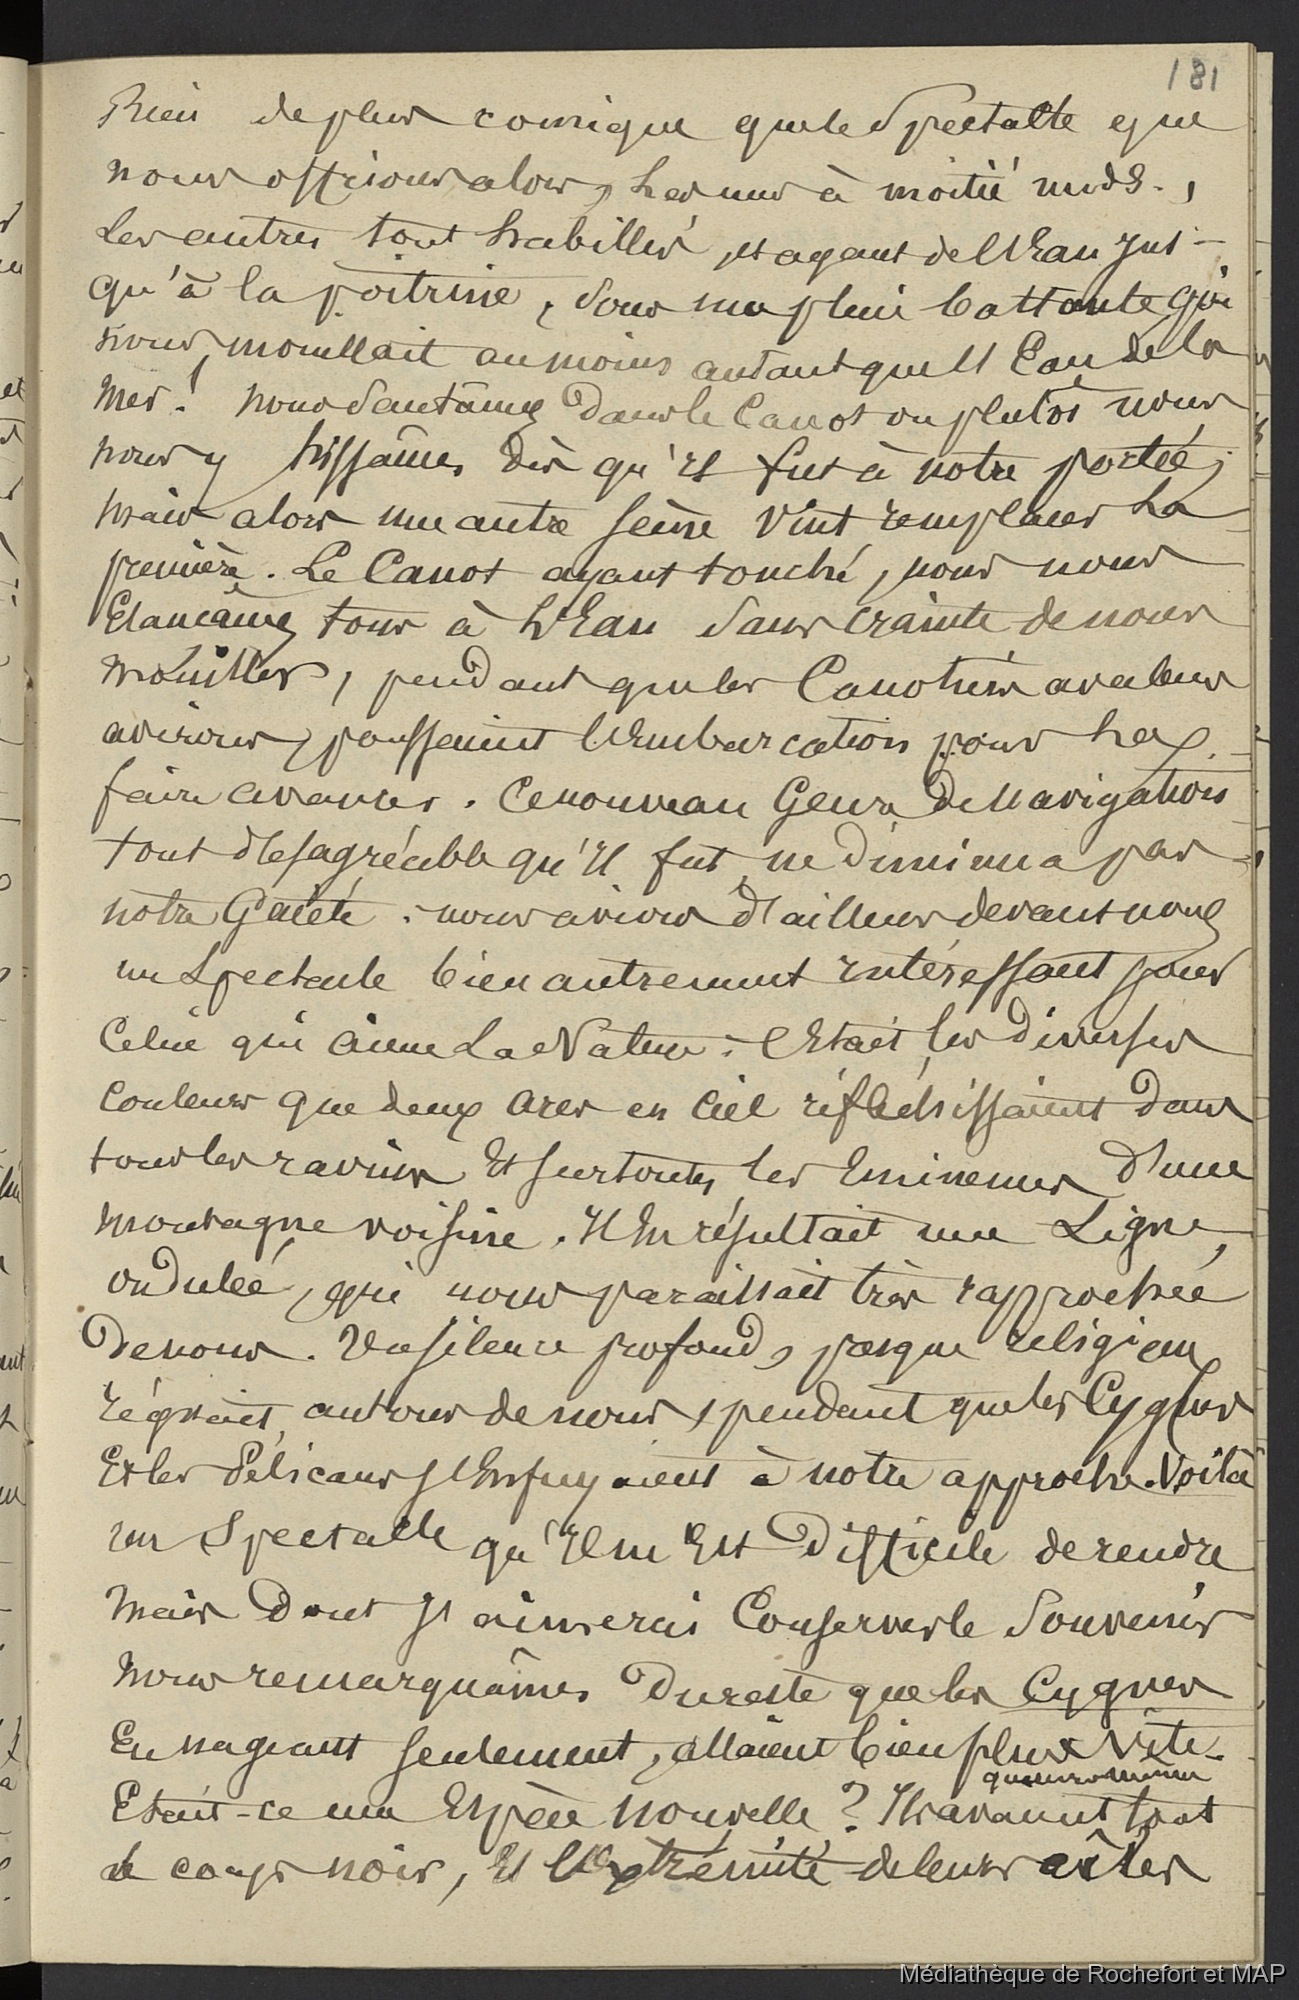 181
Rien de plus comique que le Spectacle que
nous offrions alors, les uns à moitié nuds,
Les autres tout habillés, et ayant de l'Eau jus-
qu'à la poitrine, sous une pluie battante qui
nous mouillait au moins autant que l'Eau de la
Mer! Nous Sautâmes dans le Canot ou plutôt nous
nous y hissâmes dès qu'il fut à notre portée;
Mais alors une autre Scène vint remplacer La
première. Le Canot ayant touché, nous nous
Elancâmes tous à L'Eau sans crainte de nous
Mouiller, pendant que les Canotiers avec leurs
avirons, poussaient l'Embarcation pour La
faire avancer. Ce nouveau Genre de Navigation
tout désagréable qu'il fut, ne diminua pas
notre Gaieté. nous avions d'ailleurs devant nous
un Spectacle bien autrement intéressant pour
Celui qui aime La Nature: C'Etait les diverses
Couleurs que deux arcs en Ciel réfléchissaient dans
tous les ravins Et sur toutes les Eminences d'une
Montagne voisine. Il En résultait une Ligne
ondulée, qui nous paraissait très rapprochée
De nous. Un silence profond, presque religieux
régnait autour de nous, pendant que les Cygnes
Et les Pélicans s'Enfuyaient à notre approche. Voilà
un Spectacle qu'il m'Est Difficile de rendre
Mais Dont J'aimerais Conserver le Souvenir
Nous remarquâmes Du reste que les Cygnes
En nageant seulement, allaient bien plus vite
que nous même
Etait-ce une Espèce nouvelle? Ils avaient tout
le corps noir, Et l'Extrémité de leurs aîles
Médiathèque de Rochefort et MAP